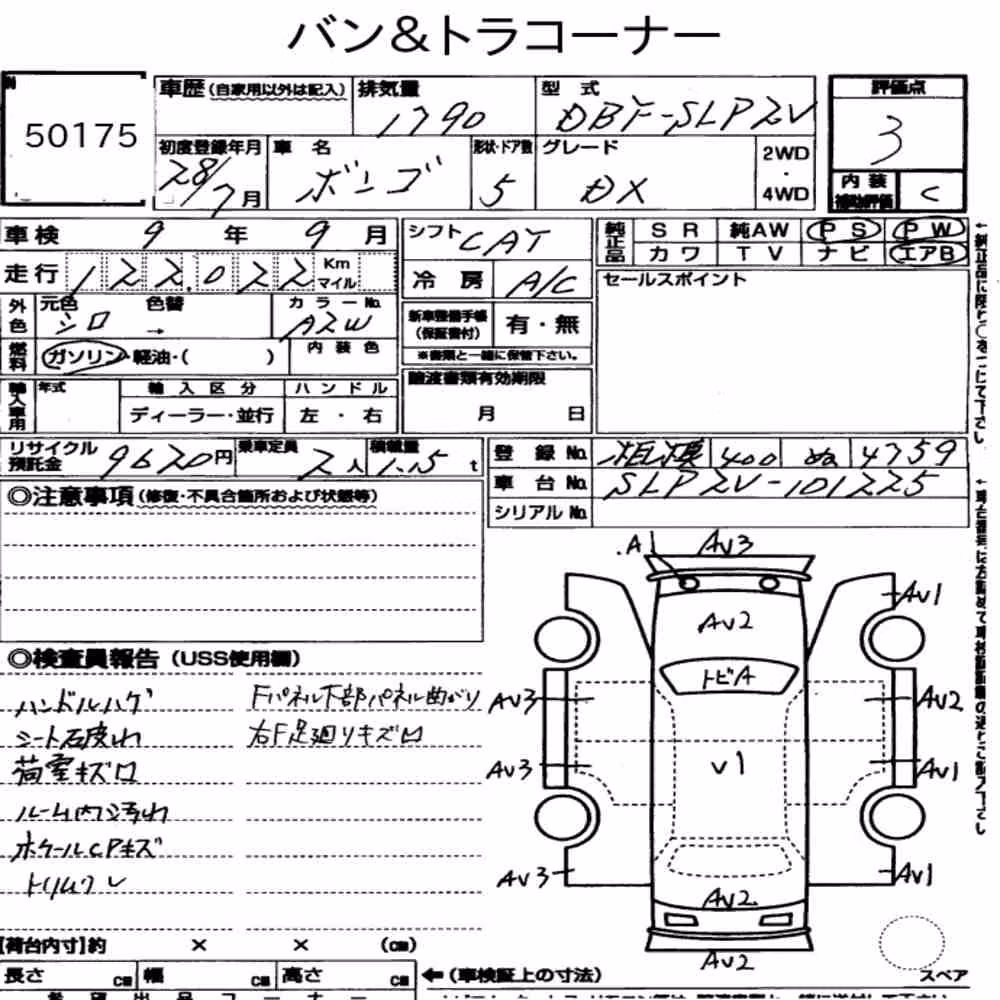 バン&トラコーナー
50175
車歴(自家用以外は記入) 排気量 1790 型式 DBF-SLP2V 評価点 3
初度登録年月 28/7月 車名 ボンゴ 形状・ドア数 5 グレード DX 2WD・4WD
内装補助評価 C
車検 9年 9月 シフト CAT 純正品 SR 純AW PS PW
カワ TV ナビ エアB
走行 122,022 Km マイル 冷房 A/C セールスポイント
外色 元色 シロ 色替 → カラーNo. A2W 新車整備手帳(保証書付) 有・無
※書類と一緒に保管下さい。
燃料 ガソリン・軽油・( ) 内装色
譲渡書類有効期限 月 日
輸入車用 年式 輸入区分 ディーラー・並行 ハンドル 左・右
リサイクル預託金 9620円 乗車定員 2人 積載量 1.15t 登録No. 相模 400 ぬ 4759
車台No. SLP2V-101225
シリアルNo.
◎注意事項(修復・不具合箇所および状態等)
◎検査員報告(USS使用欄)
ハンドルハゲ Fパネル下部パネル曲がり
右F足廻りキズロ
荷室キズロ
ルーム内ヨゴ汚れ
トリムワレ
.A AV3
AV1
AV2
トビA
AV3 AV2
V1
AV3 AV1
AV3 AV1
AV2
AV2
スペア
【荷台内寸】約 × × (cm)
長さ cm 幅 cm 高さ cm ←(車検証上の寸法)
希望出品コーナー